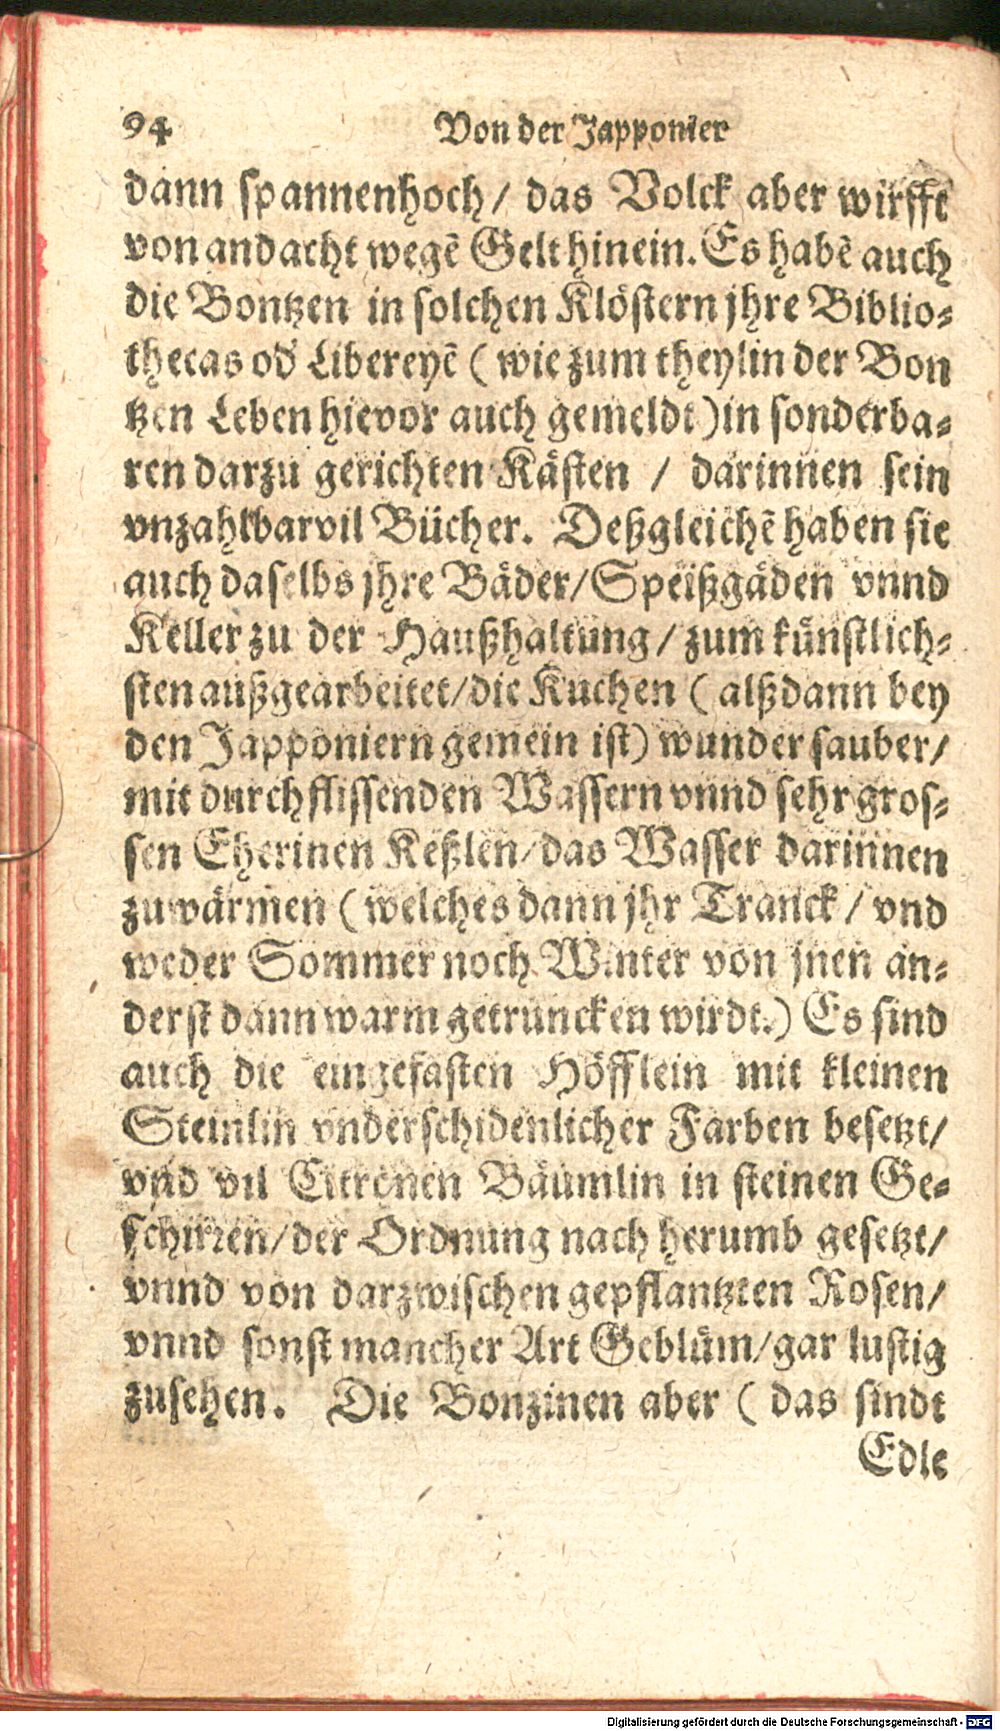 94 Von der Japponier
dann spannenhoch/ das Volck aber wirfft
von andacht wegẽ Gelt hinein. Es habẽ auch
die Bontzen in solchen Klöstern jhre Biblio-
thecas od' Libereyẽ (wie zum theyl in der Bon
tzen Leben hievor auch gemeldt) in sonderba-
ren darzu gerichten Kästen / darinnen sein
vnzahlbarvil Bücher. Deßgleichẽ haben sie
auch daselbs jhre Bäder/Speißgäden vnnd
Keller zu der Haußhaltung/ zum künstlich-
sten außgearbeitet/die Kuchen ( alßdann bey
den Japponiern gemein ist) wunder sauber/
mit durchflissenden Wassern vnnd sehr gros-
sen Eherinen Keßlen/das Wasser darinnen
zuwärmen (welches dann jhr Tranck / vnd
weder Sommer noch Winter von jnen an-
derst dann warm getruncken wirdt.) Es sind
auch die eingefasten Höfflein mit kleinen
Steinlin vnderschidenlicher Farben besetzt/
vnd vil Citronen Bäumlin in steinen Ge-
schirren/der Ordnung nach herumb gesetzt/
vnnd von darzwischen gepflantzten Rosen/
vnnd sonst mancher Art Geblüm/gar lustig
zusehen. Die Bonzinen aber ( das sindt
Edle
Digitalisierung gefördert durch die Deutsche Forschungsgemeinschaft - DFG